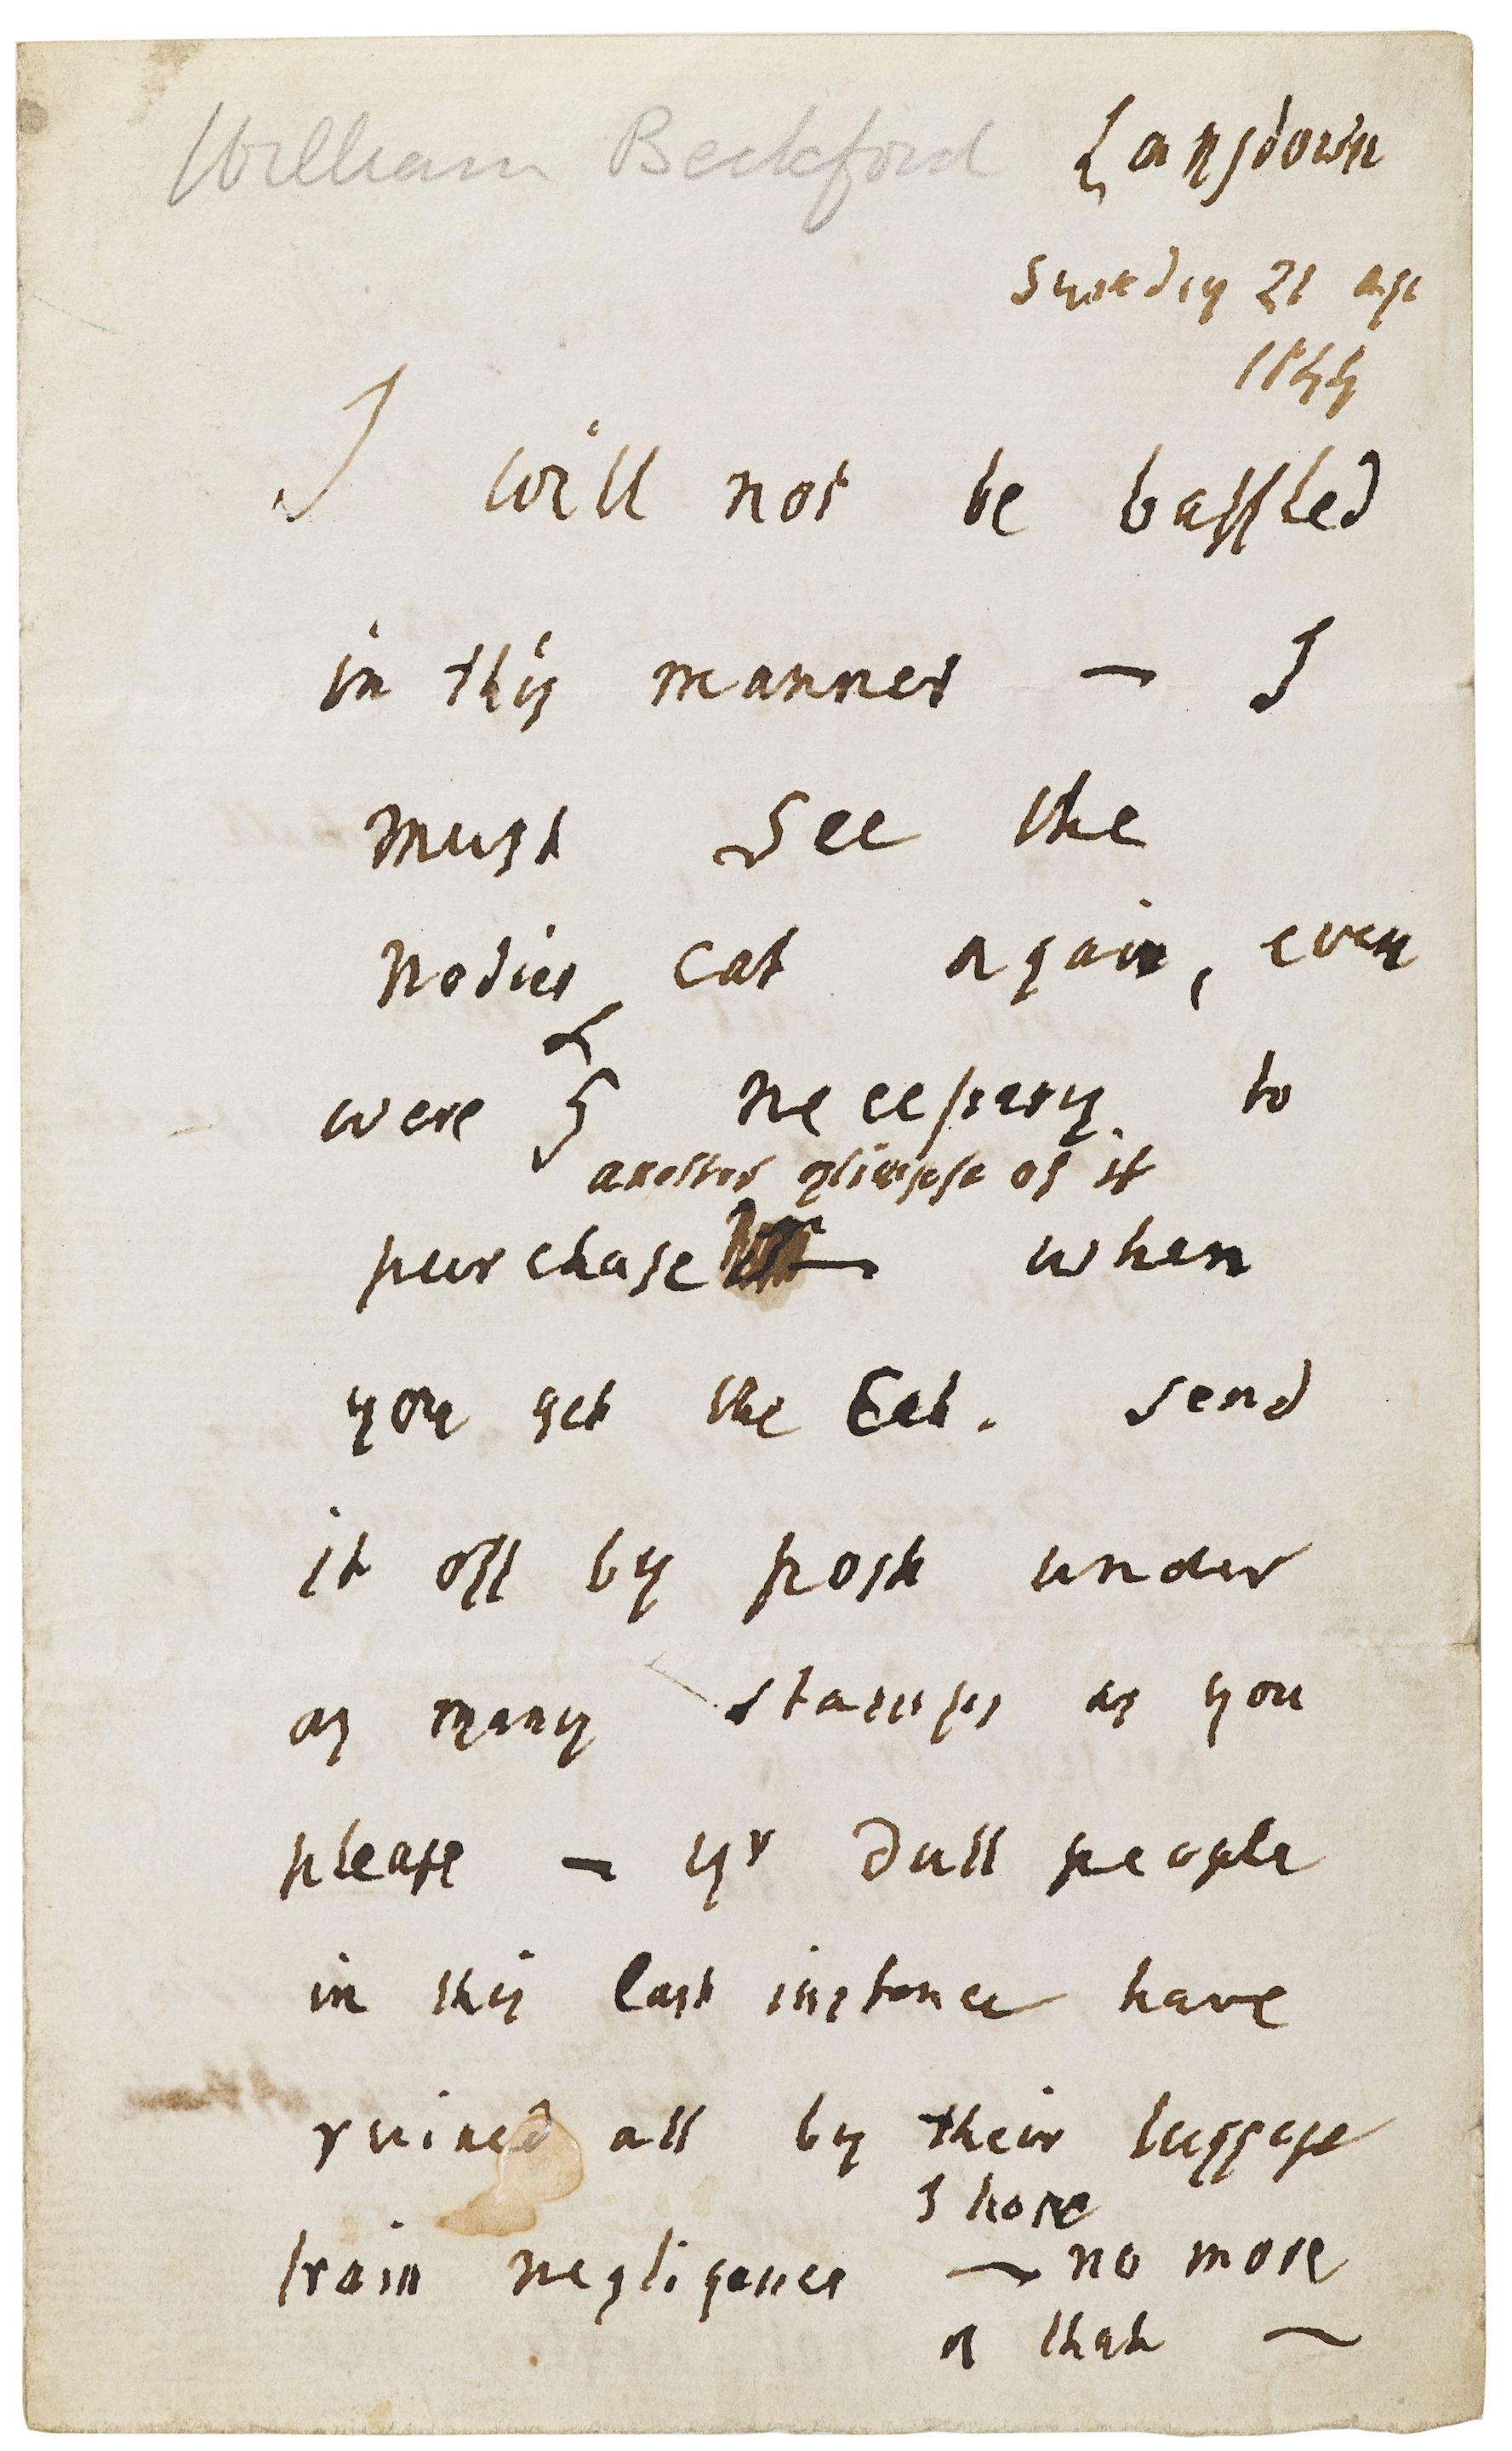 William Beckford Lansdown
Sunday 21 ap
1844
I will not be baffled
in this manner — I
must see the
Nodier cat again, even
were I necessary to
another glimpse of it
purchase — when
you get the Cat. send
it off by post under
as many stamps as you
please — yr dull people
in this last instance have
ruined all by their luggage
I hope
train negligence — no more
of that —